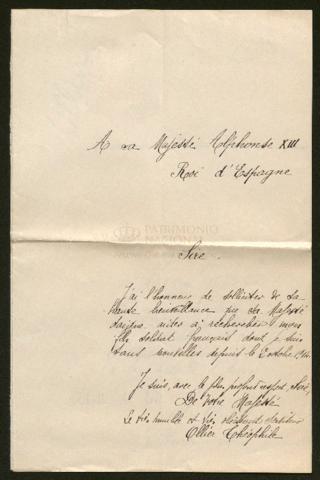 A sa Majesté Alphonse XIII
Roi d'Espagne
PATRIMONIO
NACIONAL
Sire
J'ai l'honneur de solliciter de la
haute bienveillance que sa Majesté
daigne aider à rechercher mon
fils soldat français dont je suis
sans nouvelles depuis le 2 octobre 1914
Je suis, avec le plus profond respect, Sire
De Votre Majesté
Le très humble et très obéissant serviteur
Ollier Théophile